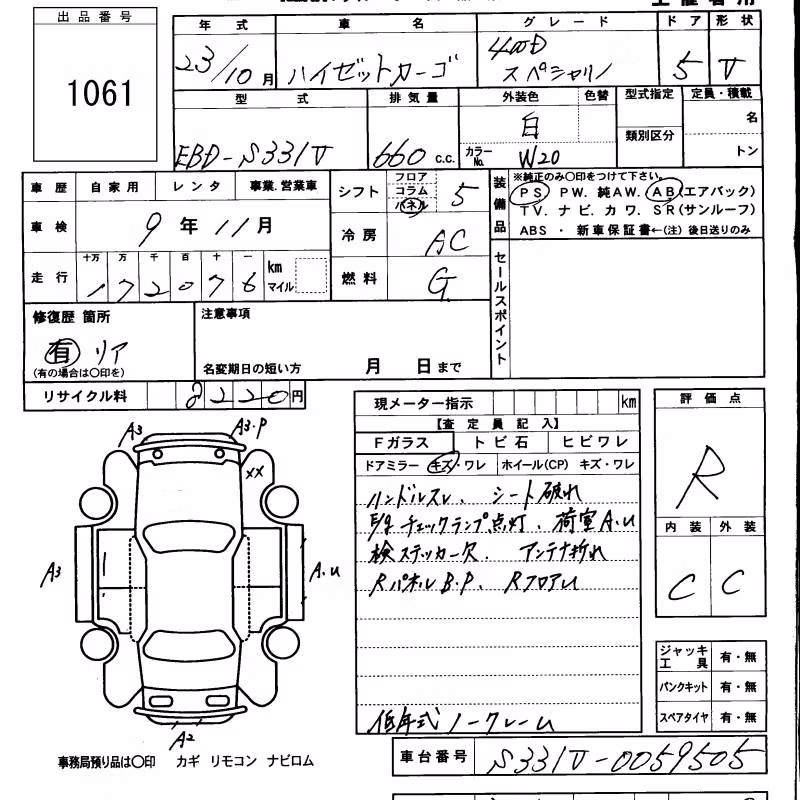 出品番号
1061
年式 車名 グレード ドア 形状
23/10月 ハイゼットカーゴ 4WD スペシャル 5 V
型式 排気量 外装色 色替 型式指定 定員・積載
EBD-S331V 660 c.c. 白 類別区分 名
カラーNo. W20 トン
車歴 自家用 レンタ 事業.営業車
車検 9年11月
走行 十万 万 千 百 十 一
172076 km マイル
シフト フロア コラム パネル 5
冷房 AC
燃料 G
装備品
※純正のみ○印をつけて下さい。
PS PW. 純AW. AB(エアバック)
TV. ナビ. カワ. SR(サンルーフ)
ABS ・ 新車保証書←(注) 後日送りのみ
セールスポイント
修復歴 箇所
有 リア
(有の場合は○印を)
注意事項
名変期日の短い方 月 日まで
リサイクル料 8220円
現メーター指示 km
【査定員記入】
Fガラス トビ石 ヒビワレ
ドアミラー キズ・ワレ ホイール(CP) キズ・ワレ
ハンドルスレ、シート破れ
E/gチェックランプ点灯、荷室A.U
検ステッカー欠、アンテナ折れ
RパネルB.P、RフロアU
低年式ノークレーム
評価点
R
内装 外装
C C
ジャッキ工具 有・無
パンクキット 有・無
スペアタイヤ 有・無
A3 A3.P
XX
A3 A.U
A2
事務局預り品は○印 カギ リモコン ナビロム
車台番号 S331V-0059505